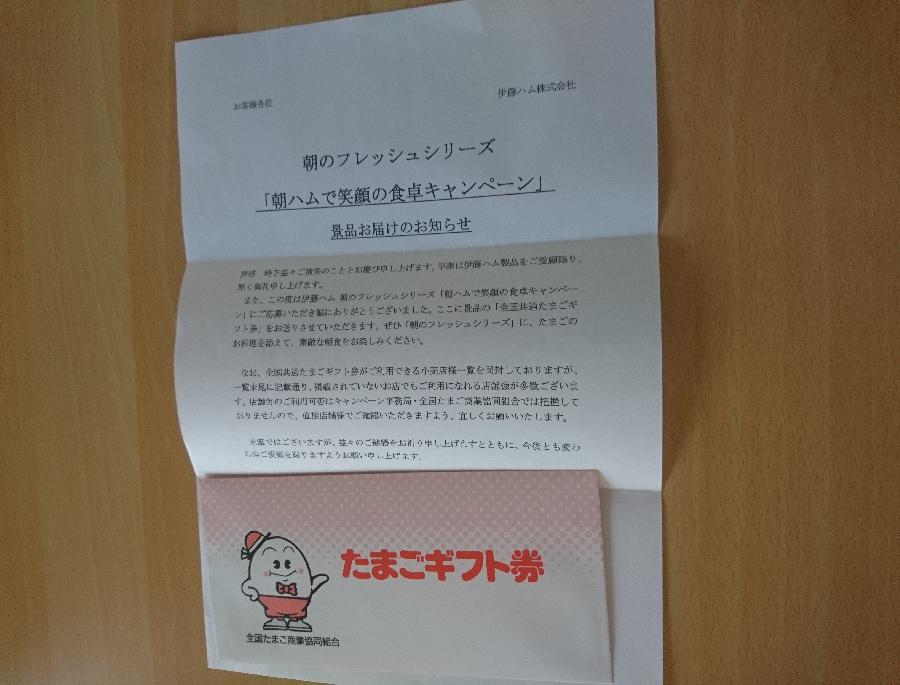 お客様各位
伊藤ハム株式会社
朝のフレッシュシリーズ
「朝ハムで笑顔の食卓キャンペーン」
景品お届けのお知らせ
拝啓　時下益々ご清栄のこととお慶び申し上げます。平素は伊藤ハム製品をご愛顧賜り、
厚く御礼申し上げます。
また、この度は伊藤ハム 朝のフレッシュシリーズ「朝ハムで笑顔の食卓キャンペー
ン」にご応募いただき誠にありがとうございました。ここに景品の「全国共通たまごギ
フト券」をお送りさせていただきます。ぜひ「朝のフレッシュシリーズ」に、たまごの
お料理を添えて、素敵な朝食をお楽しみください。
なお、全国共通たまごギフト券がご利用できる小売店様一覧を同封しておりますが、
一覧末尾に記載通り、掲載されていないお店でもご利用になれる店舗様が多数ございま
す。店舗毎のご利用可否はキャンペーン事務局・全国たまご商業協同組合では把握して
おりませんので、直接店舗様でご確認いただきますよう、宜しくお願いいたします。
末筆ではございますが、益々のご健勝をお祈り申し上げますとともに、今後とも変わ
らぬご愛顧を賜りますようお願い申し上げます。
たまごギフト券
全国たまご商業協同組合